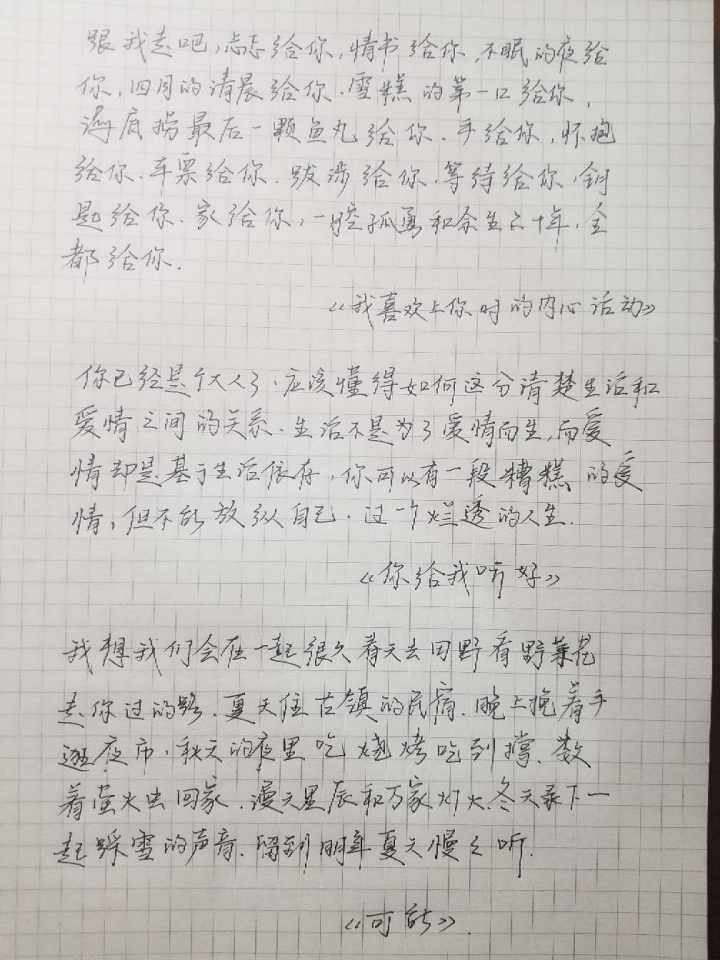 跟我走吧,忐忑给你,情书给你,不眠的夜给
你,四月的清晨给你.雪糕的第一口给你,
海底捞最后一颗鱼丸给你.手给你,怀抱
给你.车票给你.跋涉给你.等待给你,钥
匙给你.家给你,一腔孤勇和余生六十年,全
都给你.
《我喜欢上你时的内心活动》
你已经是个大人了.应该懂得如何区分清楚生活和
爱情之间的关系.生活不是为了爱情而生,而爱
情却是基于生活依存,你可以有一段糟糕的爱
情,但不能放纵自己.过一个烂透的人生.
《你给我听好》
我想我们会在一起很久春天去田野看野菜花
走你过的路.夏天住古镇的民宿.晚上挽着手
逛夜市,秋天的夜里吃烧烤吃到撑.数
着萤火虫回家.漫天星辰和万家灯火.冬天录下一
起踩雪的声音.留到明年夏天慢慢听.
《可能》.